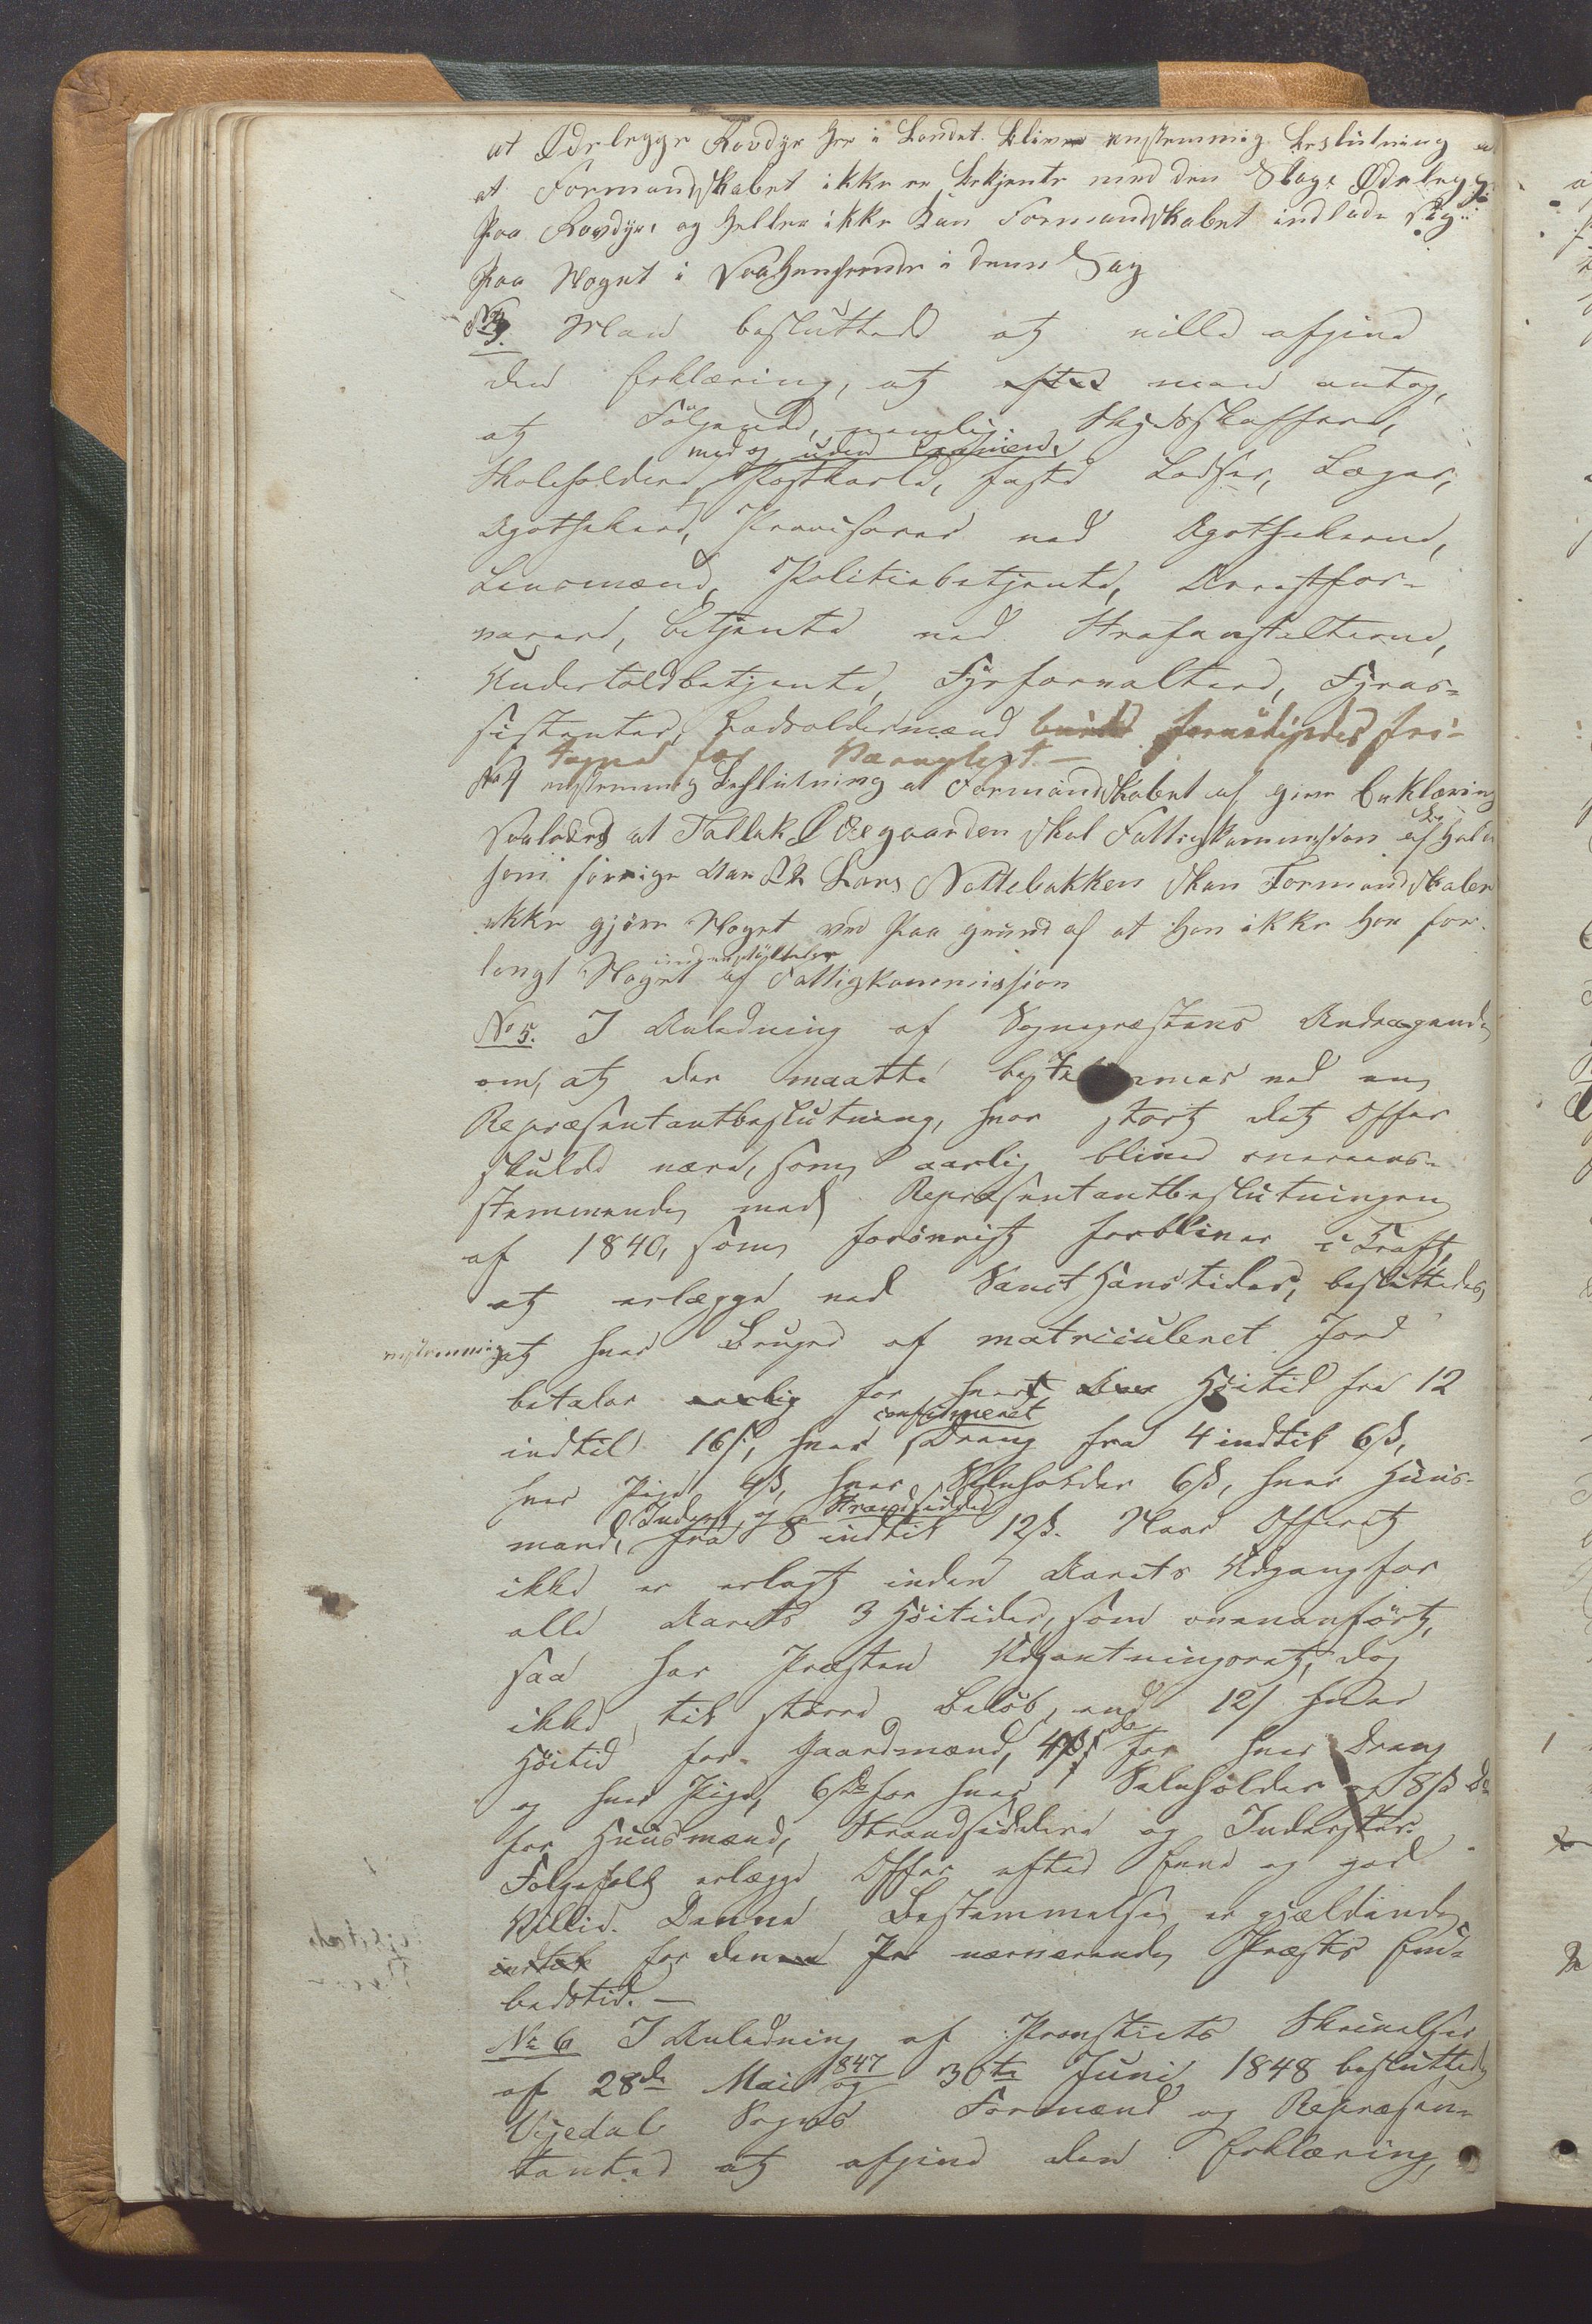 at Ødelegge Rovdyr her i Landet. bliver enstemmig beslutning
at Formandskabet ikke er bekjente med den Slags Ødeleg
paa Rovdyr, og heller ikke kan Formandskabet indlade sig
paa Noget i Saahenseende i denne Sag
No 3. Man besluttede at ville afgive
den Erklæring, at efter man antog,
at Følgende, nemlig: Skydsskaffere,
med og uden Examen
Skoleholdere, Postkarle, faste Lodser, Læger,
Apothekere, Provisorer ved Apothekerne,
Lensmænd, Politiebetjente, Arrestfor-
varere, Betjente ved Strafanstalterne,
Undertoldbetjente, Fyrforvaltere, Fyras-
sistenter, Lodsoldermænd burde fornødigedes fri-
tagne for Værnepligt. —
No 4 enstemmig Beslutning at Formandskabet af giver Erklæring
Saaledes at Tallak Ø Øegaarden skal Fattigkommission af holde
som forrige Aar Lars Nottebakken kan Formandskabet
ikke gjøre Noget ved paa grund af at han ikke har for-
langt Noget af Fattigkommission
No 5. I Anledning af Sognepræstens Andragende
om, at der maatte bestemmes ved en
Repræsentantbeslutning, hvor stort det Offer
skulde være, som aarlig bliver overeens-
stemmende med Repræsentantbeslutningen
af 1840, som forøvrigt forbliver i Kraft,
at erlægge ved Sanct Hanstider, besluttedes
enstemmig at hver Bruger af matriculeret Jord
betaler aarlig for hver Høitid fra 12
confirmeret
indtil 16 s, hver Dreng fra 4 indtil 6 s,
hver Pige 4 s, hver Selvholder 6 s, hver Huus-
Inderst og Strandsidder
mand, fra 8 indtil 12 s. Naar Offeret
ikke er erlagt inden Aarets Udgang for
alle Aarets 3 Høitider, som ovenanført,
saa har Præsten Udpantningsret, dog
ikke til større Beløb, end 12 s hver
Høitid for Gaardmænd, 4 s for hver Dreng
og hver Pige, 6 s for hver Selvholder og 8 s
for Huusmænd, Strandsiddere og Inderster.
Folgefolk erlægge Offer efter Evne og god
Villie. Denne Bestemmelse er gjældende
indtil for denne nærværende Præsts Em-
bedstid. —
No 6 I Anledning af Provstiets Skrivelser
af 28de Mai 1847 og 30te Juni 1848 besluttede
Vigedal Sogns Formænd og Repræsen-
tanter at afgive den Erklæring,